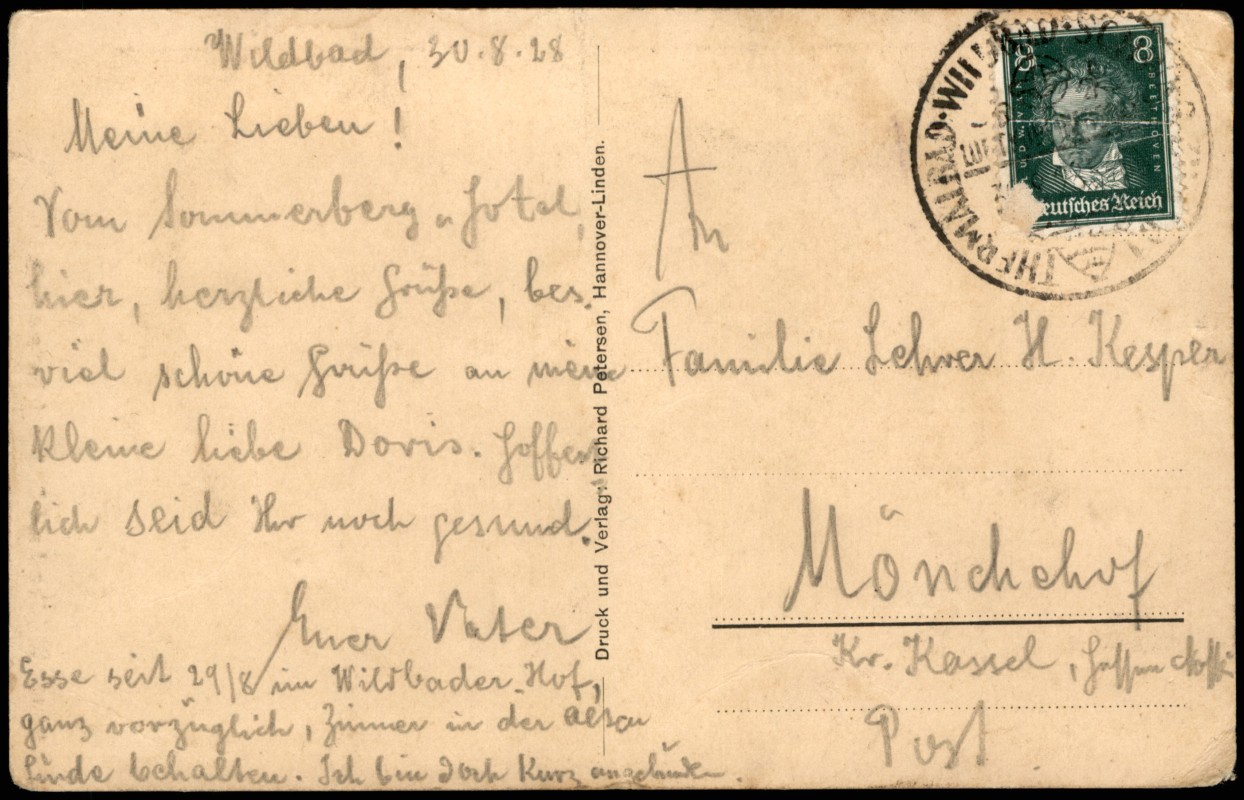 Wildbad, 30.8.28
Meine Lieben!
Vom Sommerberg u Hotel,
hier, herzliche Grüße, bes.
viel schöne Grüße an meine
kleine liebe Doris. Hoffent
lich seid Ihr noch gesund.
Euer Vater
Esse seit 29/8 im Wildbader-Hof,
ganz vorzüglich, Zimmer in der alten
Linde behalten. Ich bin doch kurz angebunden.
Druck und Verlag: Richard Petersen, Hannover-Linden.
THERMALBAD·WILDBAD·
LUFT
8 8
BEETHOVEN
Deutsches Reich
An
Familie Lehrer H. Kesper
Mönchehof
Kr. Kassel, Hessen
Post